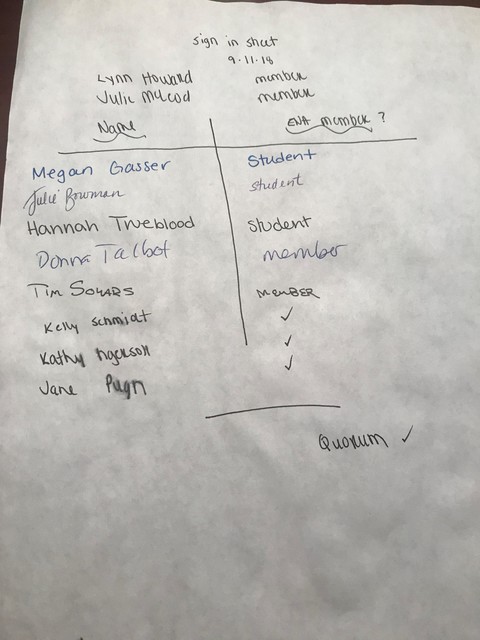 sign in sheet
9.11.18
Lynn Howard member
Julie McLeod member
Name ENA member ?
Megan Gasser Student
Julie Bowman student
Hannah Trueblood student
Donna Talbot member
Tim MEMBER
Kelly Schmidt ✓
Kathy ✓
Jane ✓
Quorum ✓